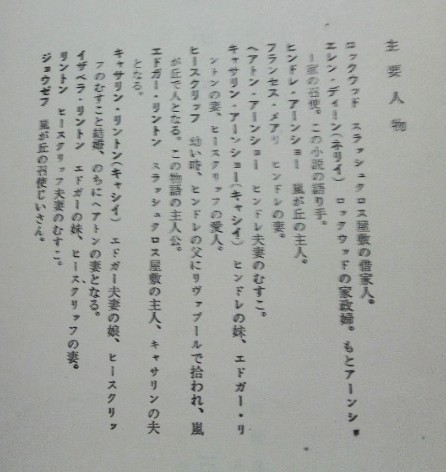 主要人物
ロックウッド　スラッシュクロス屋敷の借家人。
エレン・ディーン(ネリイ)　ロックウッドの家政婦。もとアーンショ
ー家の召使。この小説の語り手。
ヒンドレ・アーンショー　嵐が丘の主人。
フランセス・メアリ　ヒンドレの妻。
ヘアトン・アーンショー　ヒンドレ夫妻のむすこ。
キャサリン・アーンショー(キャシイ)　ヒンドレの妹、エドガー・リ
ントンの妻、ヒースクリッフの愛人。
ヒースクリッフ　幼い時、ヒンドレの父にリヴァプールで拾われ、嵐
が丘で人となる。この物語の主人公。
エドガー・リントン　スラッシュクロス屋敷の主人、キャサリンの夫
となる。
キャサリン・リントン(キャシイ)　エドガー夫妻の娘、ヒースクリッ
フのむすこと結婚、のちにヘアトンの妻となる。
イザベラ・リントン　エドガーの妹、ヒースクリッフの妻。
リントン　ヒースクリッフ夫妻のむすこ。
ジョウゼフ　嵐が丘の召使じいさん。